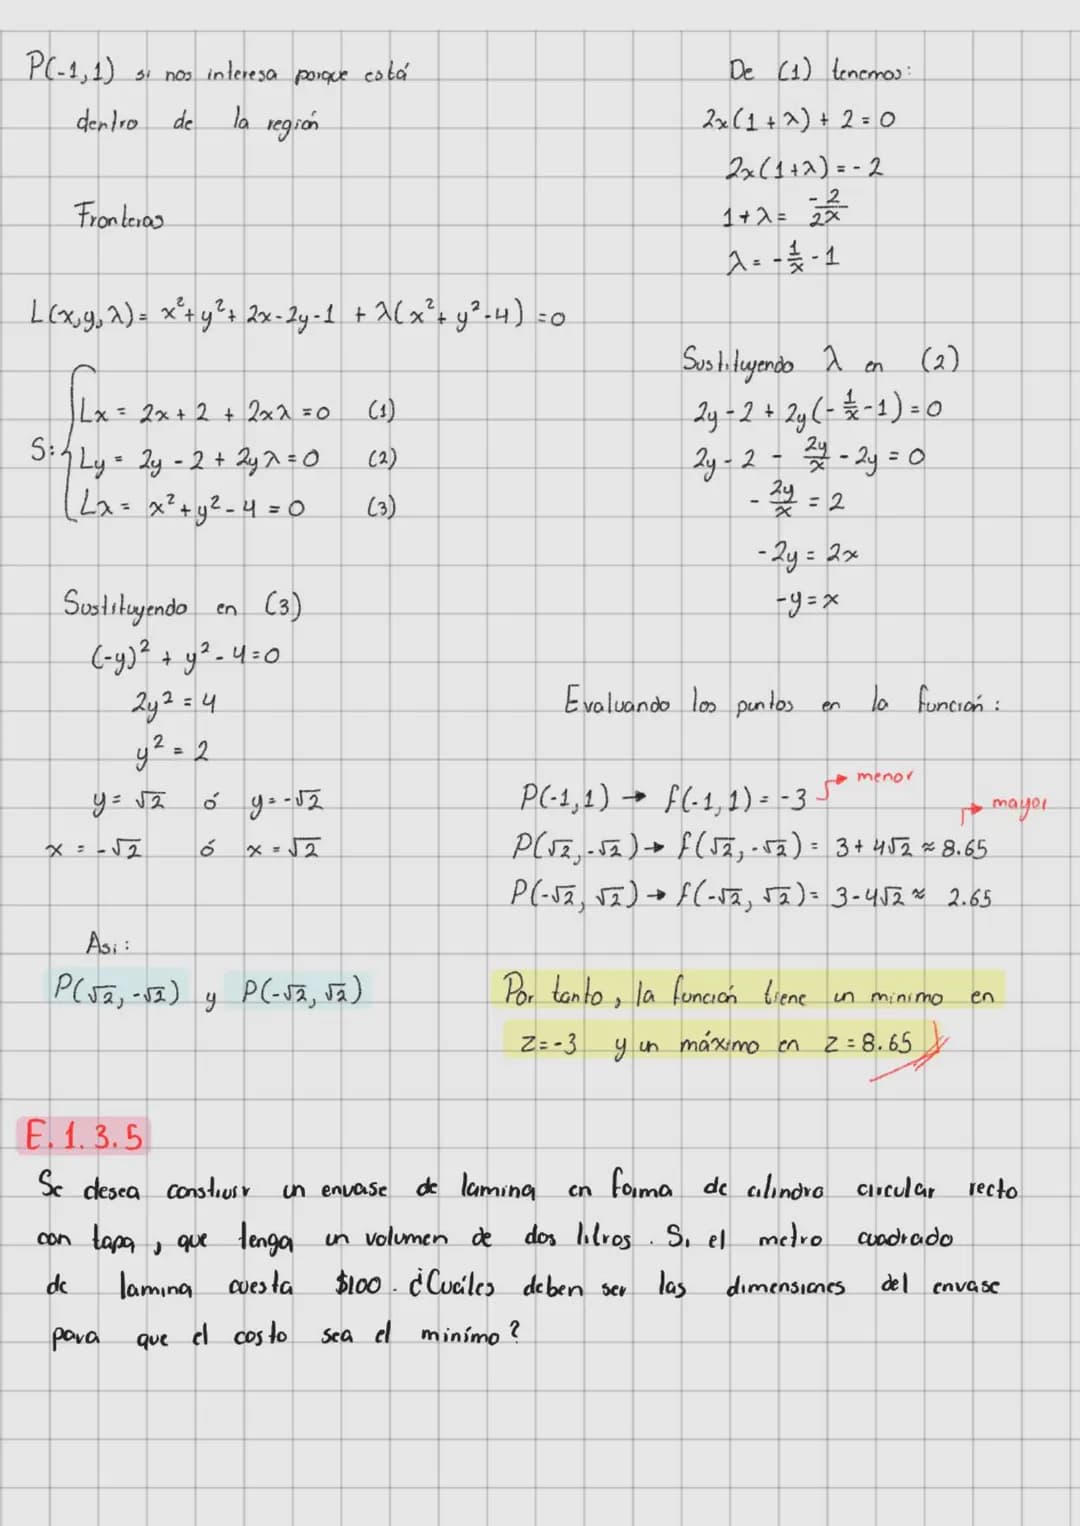 P(-1,1) si nos interesa porque está
dentro de la región
Fronteras
L(x,y,λ) = x²+y²+ 2x-2y-1 + λ(x²+ y²-4) =0
S: { Lx = 2x + 2 + 2xλ =0 (1)
Ly = 2y - 2 + 2yλ =0 (2)
Lλ = x²+y²-4 =0 (3)
De (1) tenemos:
2x(1+λ) + 2 = 0
2x(1+λ) = -2
1+λ = -2/2x
λ = -1/x - 1
Sustituyendo λ en (2)
2y - 2 + 2y(-1/x -1) = 0
2y - 2 - 2y/x - 2y = 0
- 2y/x = 2
-2y = 2x
-y = x
Sustituyendo en (3)
(-y)² + y² - 4 = 0
2y² = 4
y² = 2
y = √2 ó y = -√2
x = -√2 ó x = √2
Asi:
P(√2, -√2) y P(-√2, √2)
Evaluando los puntos en la función:
P(-1,1) → f(-1,1) = -3 → menor
P(√2,-√2) → f(√2,-√2) = 3+4√2 ≈ 8.65 → mayor
P(-√2, √2) → f(-√2, √2) = 3-4√2 ≈ 2.65
Por tanto, la función tiene un minimo en
z=-3 y un máximo en z = 8.65
E.1.3.5
Se desea construir un envase de lamina en forma de cilindro circular recto
con tapa, que tenga un volumen de dos litros. Si el metro cuadrado
de lamina cuesta $100. ¿Cuáles deben ser las dimensiones del envase
para que el costo sea el minímo?